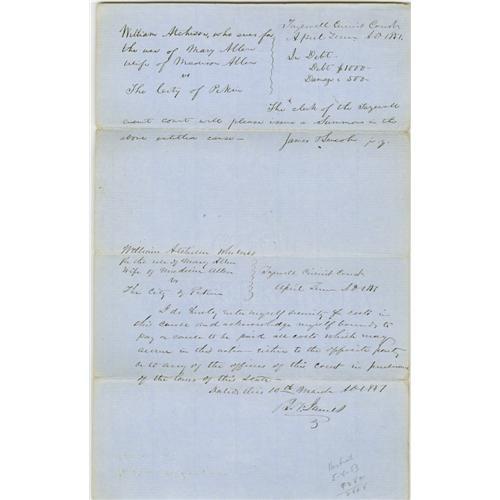 William Atchison, who sues for
the use of Mary Allen
wife of Madison Allen
vs
The City of Pekin
Tazewell Circuit Court
April Term AD 1851.
In Debt
Debt $1000-
Damage $ 500-
The clerk of the Tazewell
circuit court will please issue a Summons in the
above entitled cause-
James & Lincoln p.q.
William Atchison who sues
for the use of Mary Allen
Wife of Madison Allen
vs
The City of Pekin
Tazewell Circuit Court
April Term AD 185
I do hereby enter myself security for costs in
this cause and acknowledge myself bound to
pay or cause to be paid all costs which may
accrue in this action either to the opposite party
or to any of the officers of this court in pursuance
of the laws of this State-
Dated this 10th March AD 1851
B. F. James